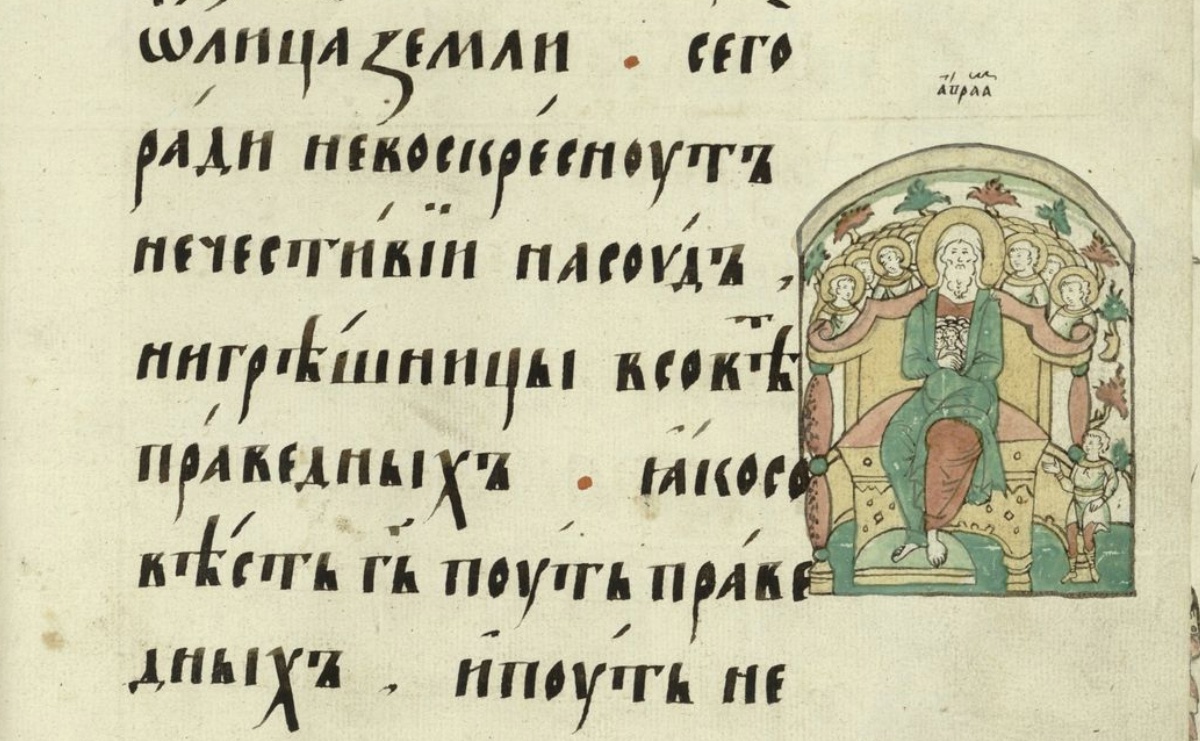 ѿлица земли . сего
ра́ди невоскре́сноутъ
нечести́вїи насоу́дъ ,
нигрѣ́шницы всовⷮѣ
пра́ведныхъ . ꙗ́косо
вѣ́сть гь поу́ть пра́ве
дныхъ , и҆поу́ть не